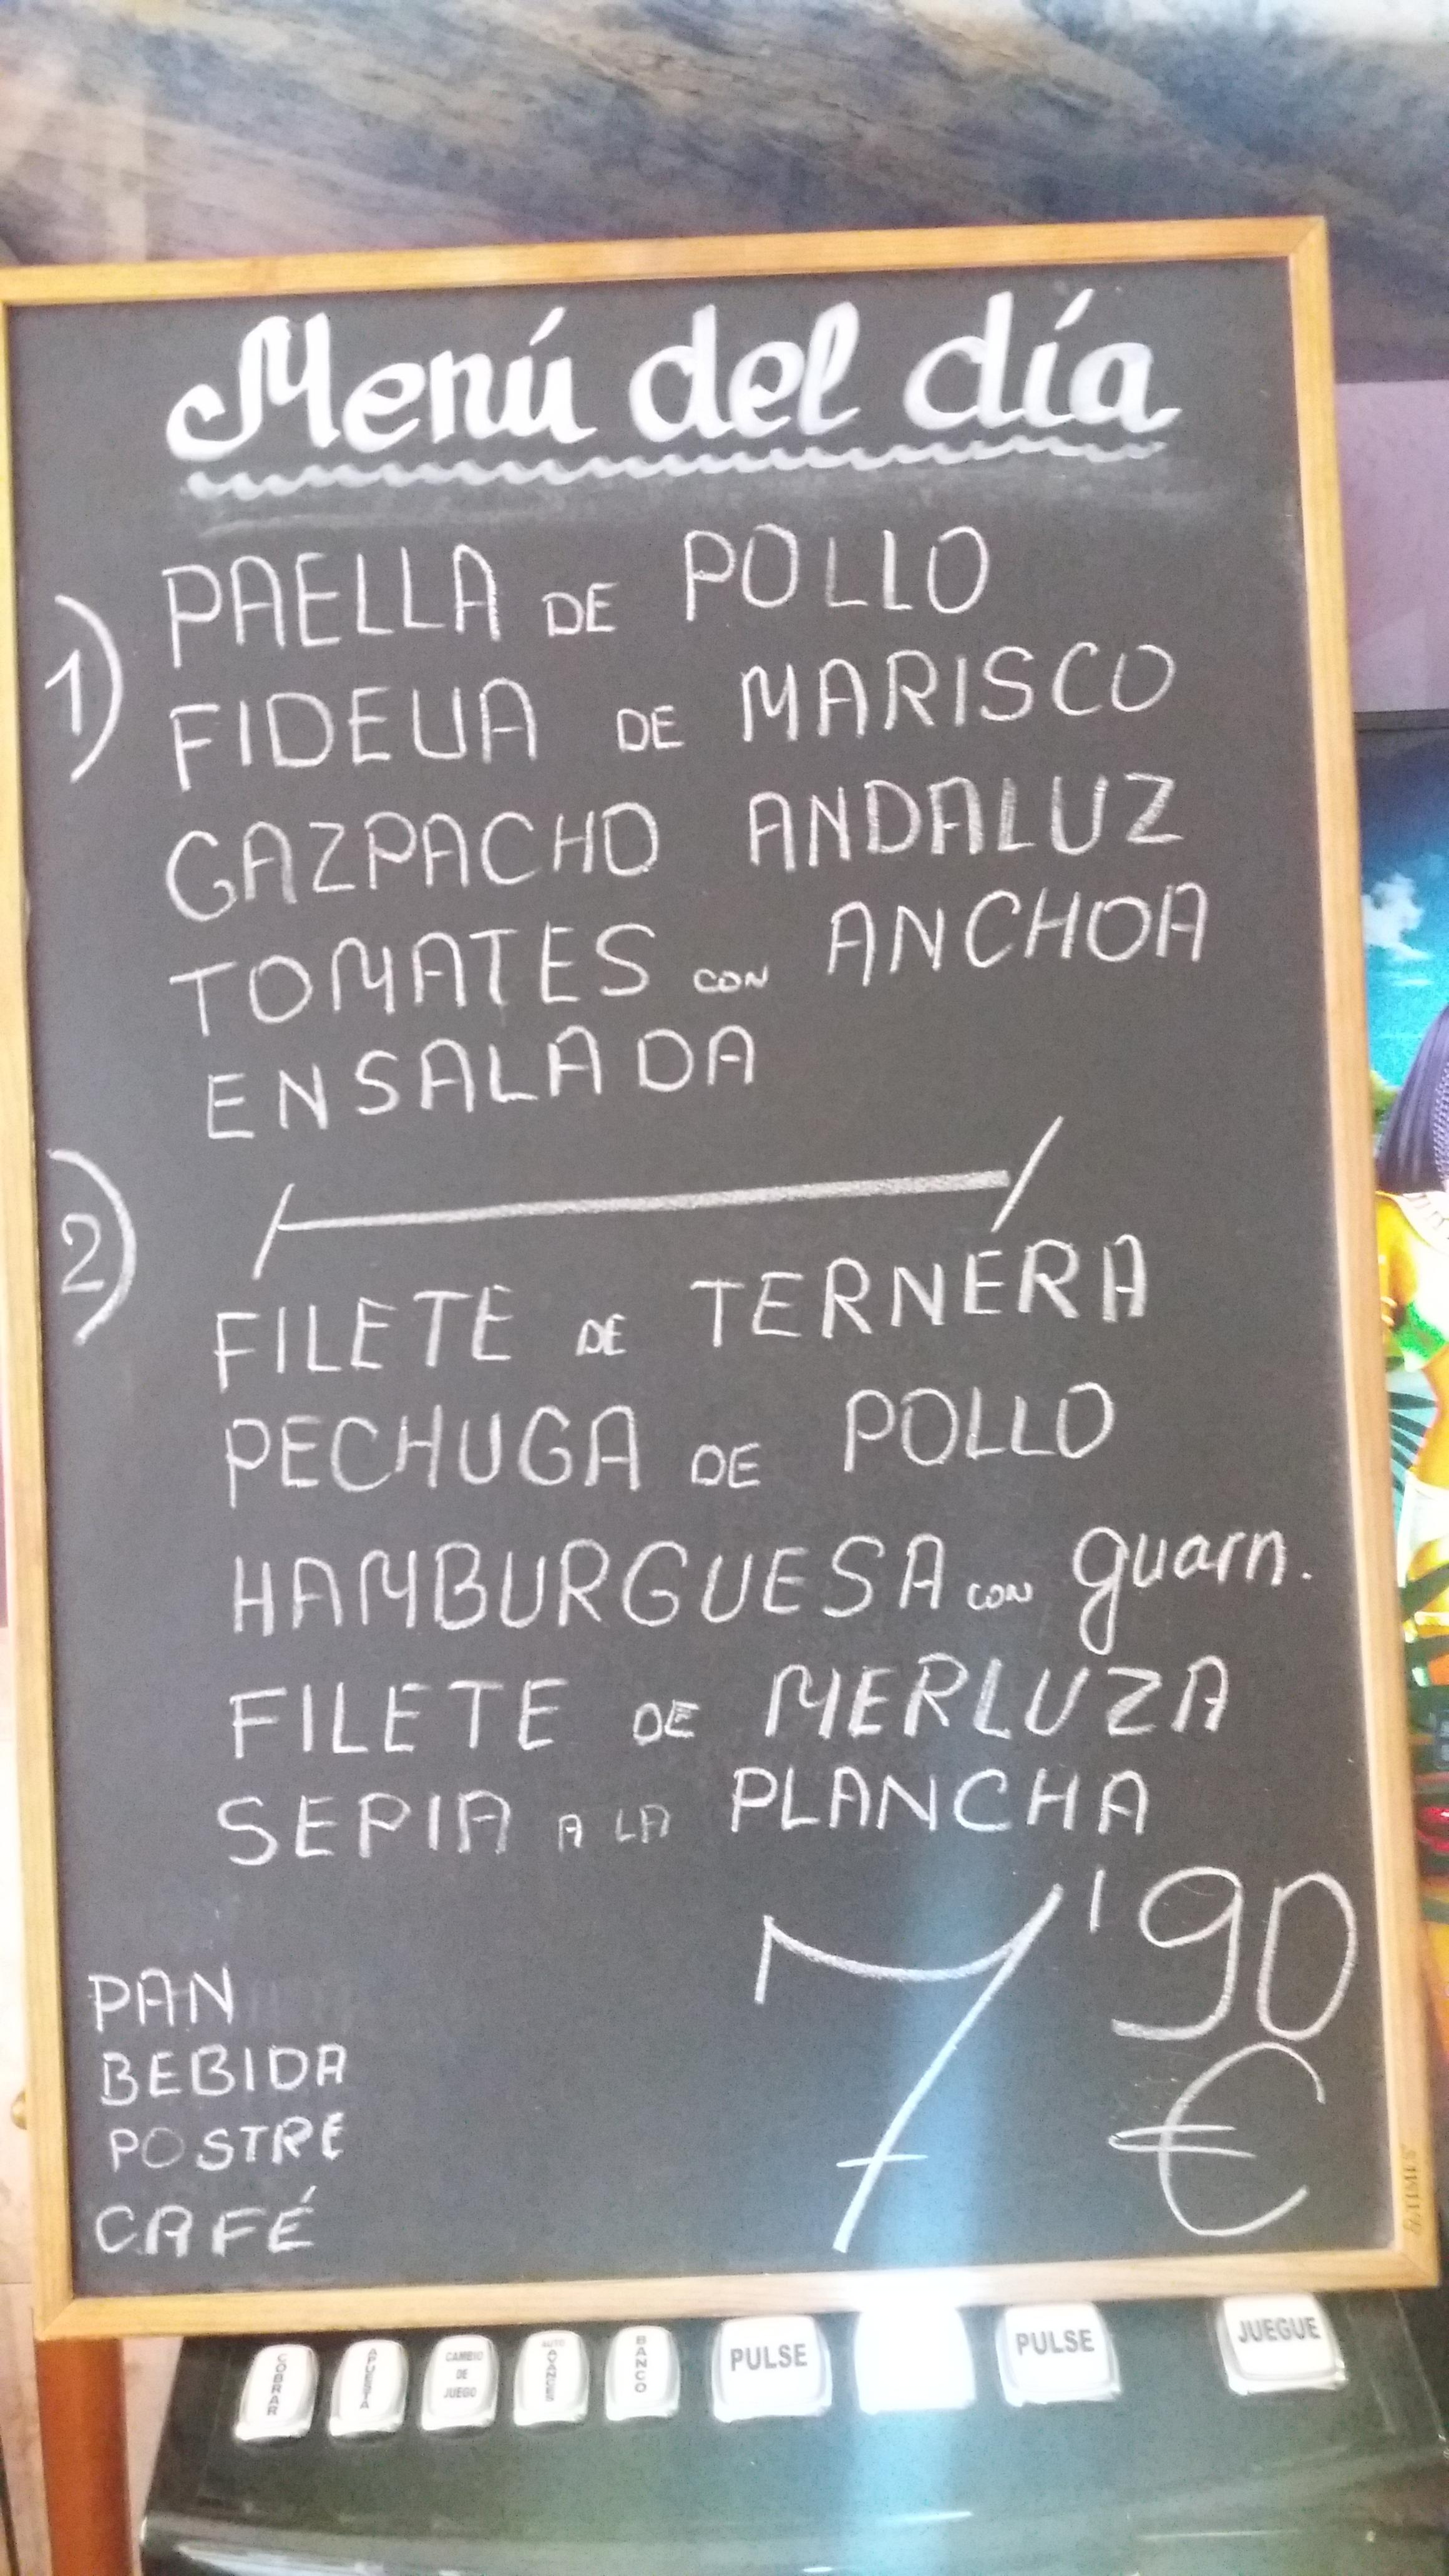 Menú del día
1) PAELLA DE POLLO
FIDEUA DE MARISCO
GAZPACHO ANDALUZ
TOMATES CON ANCHOA
ENSALADA
2)
FILETE DE TERNERA
PECHUGA DE POLLO
HAMBURGUESA CON guarn.
FILETE DE MERLUZA
SEPIA A LA PLANCHA
7'90
€
PAN
BEBIDA
POSTRE
CAFÉ
COBRAR
APUESTA
CAMBIO
DE
JUEGO
AUTO
AVANCES
BANCO
PULSE
PULSE
JUEGUE